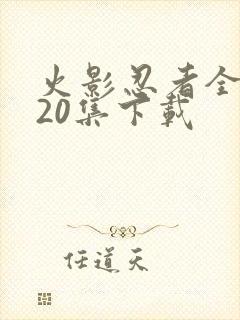 火影忍者全
20集下載
任道天